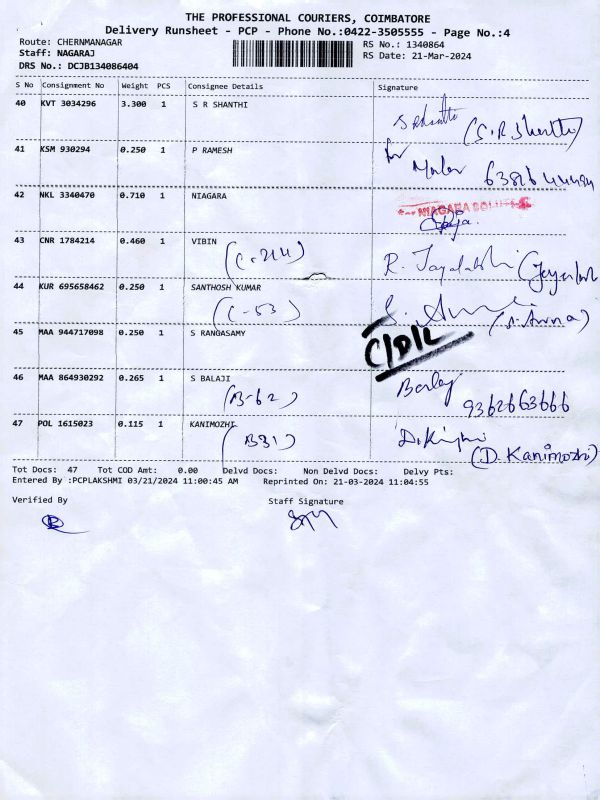 THE PROFESSIONAL COURIERS, COIMBATORE
Delivery Runsheet - PCP - Phone No.:0422-3505555 - Page No.:4
Route: CHERNMANAGAR
Staff: NAGARAJ
DRS No.: DCJB134086404
RS No.: 1340864
RS Date: 21-Mar-2024
S No Consignment No Weight PCS Consignee Details Signature
40 KVT 3034296 3.300 1 S R SHANTHI
(S.R.Shanthi)
41 KSM 930294 0.250 1 P RAMESH
for
42 NKL 3340470 0.710 1 NIAGARA
For NIAGARA
43 CNR 1784214 0.460 1 VIBIN
(C-214)
R.
44 KUR 695658462 0.250 1 SANTHOSH KUMAR
(C-53)
S.
45 MAA 944717098 0.250 1 S RANGASAMY
C/D/L
46 MAA 864930292 0.265 1 S BALAJI
(B-62)
9362663666
47 POL 1615023 0.115 1 KANIMOZHI
(B31)
(D. Kanimozhi)
Tot Docs: 47 Tot COD Amt: 0.00 Delvd Docs: Non Delvd Docs: Delvy Pts:
Entered By :PCPLAKSHMI 03/21/2024 11:00:45 AM Reprinted On: 21-03-2024 11:04:55
Verified By Staff Signature